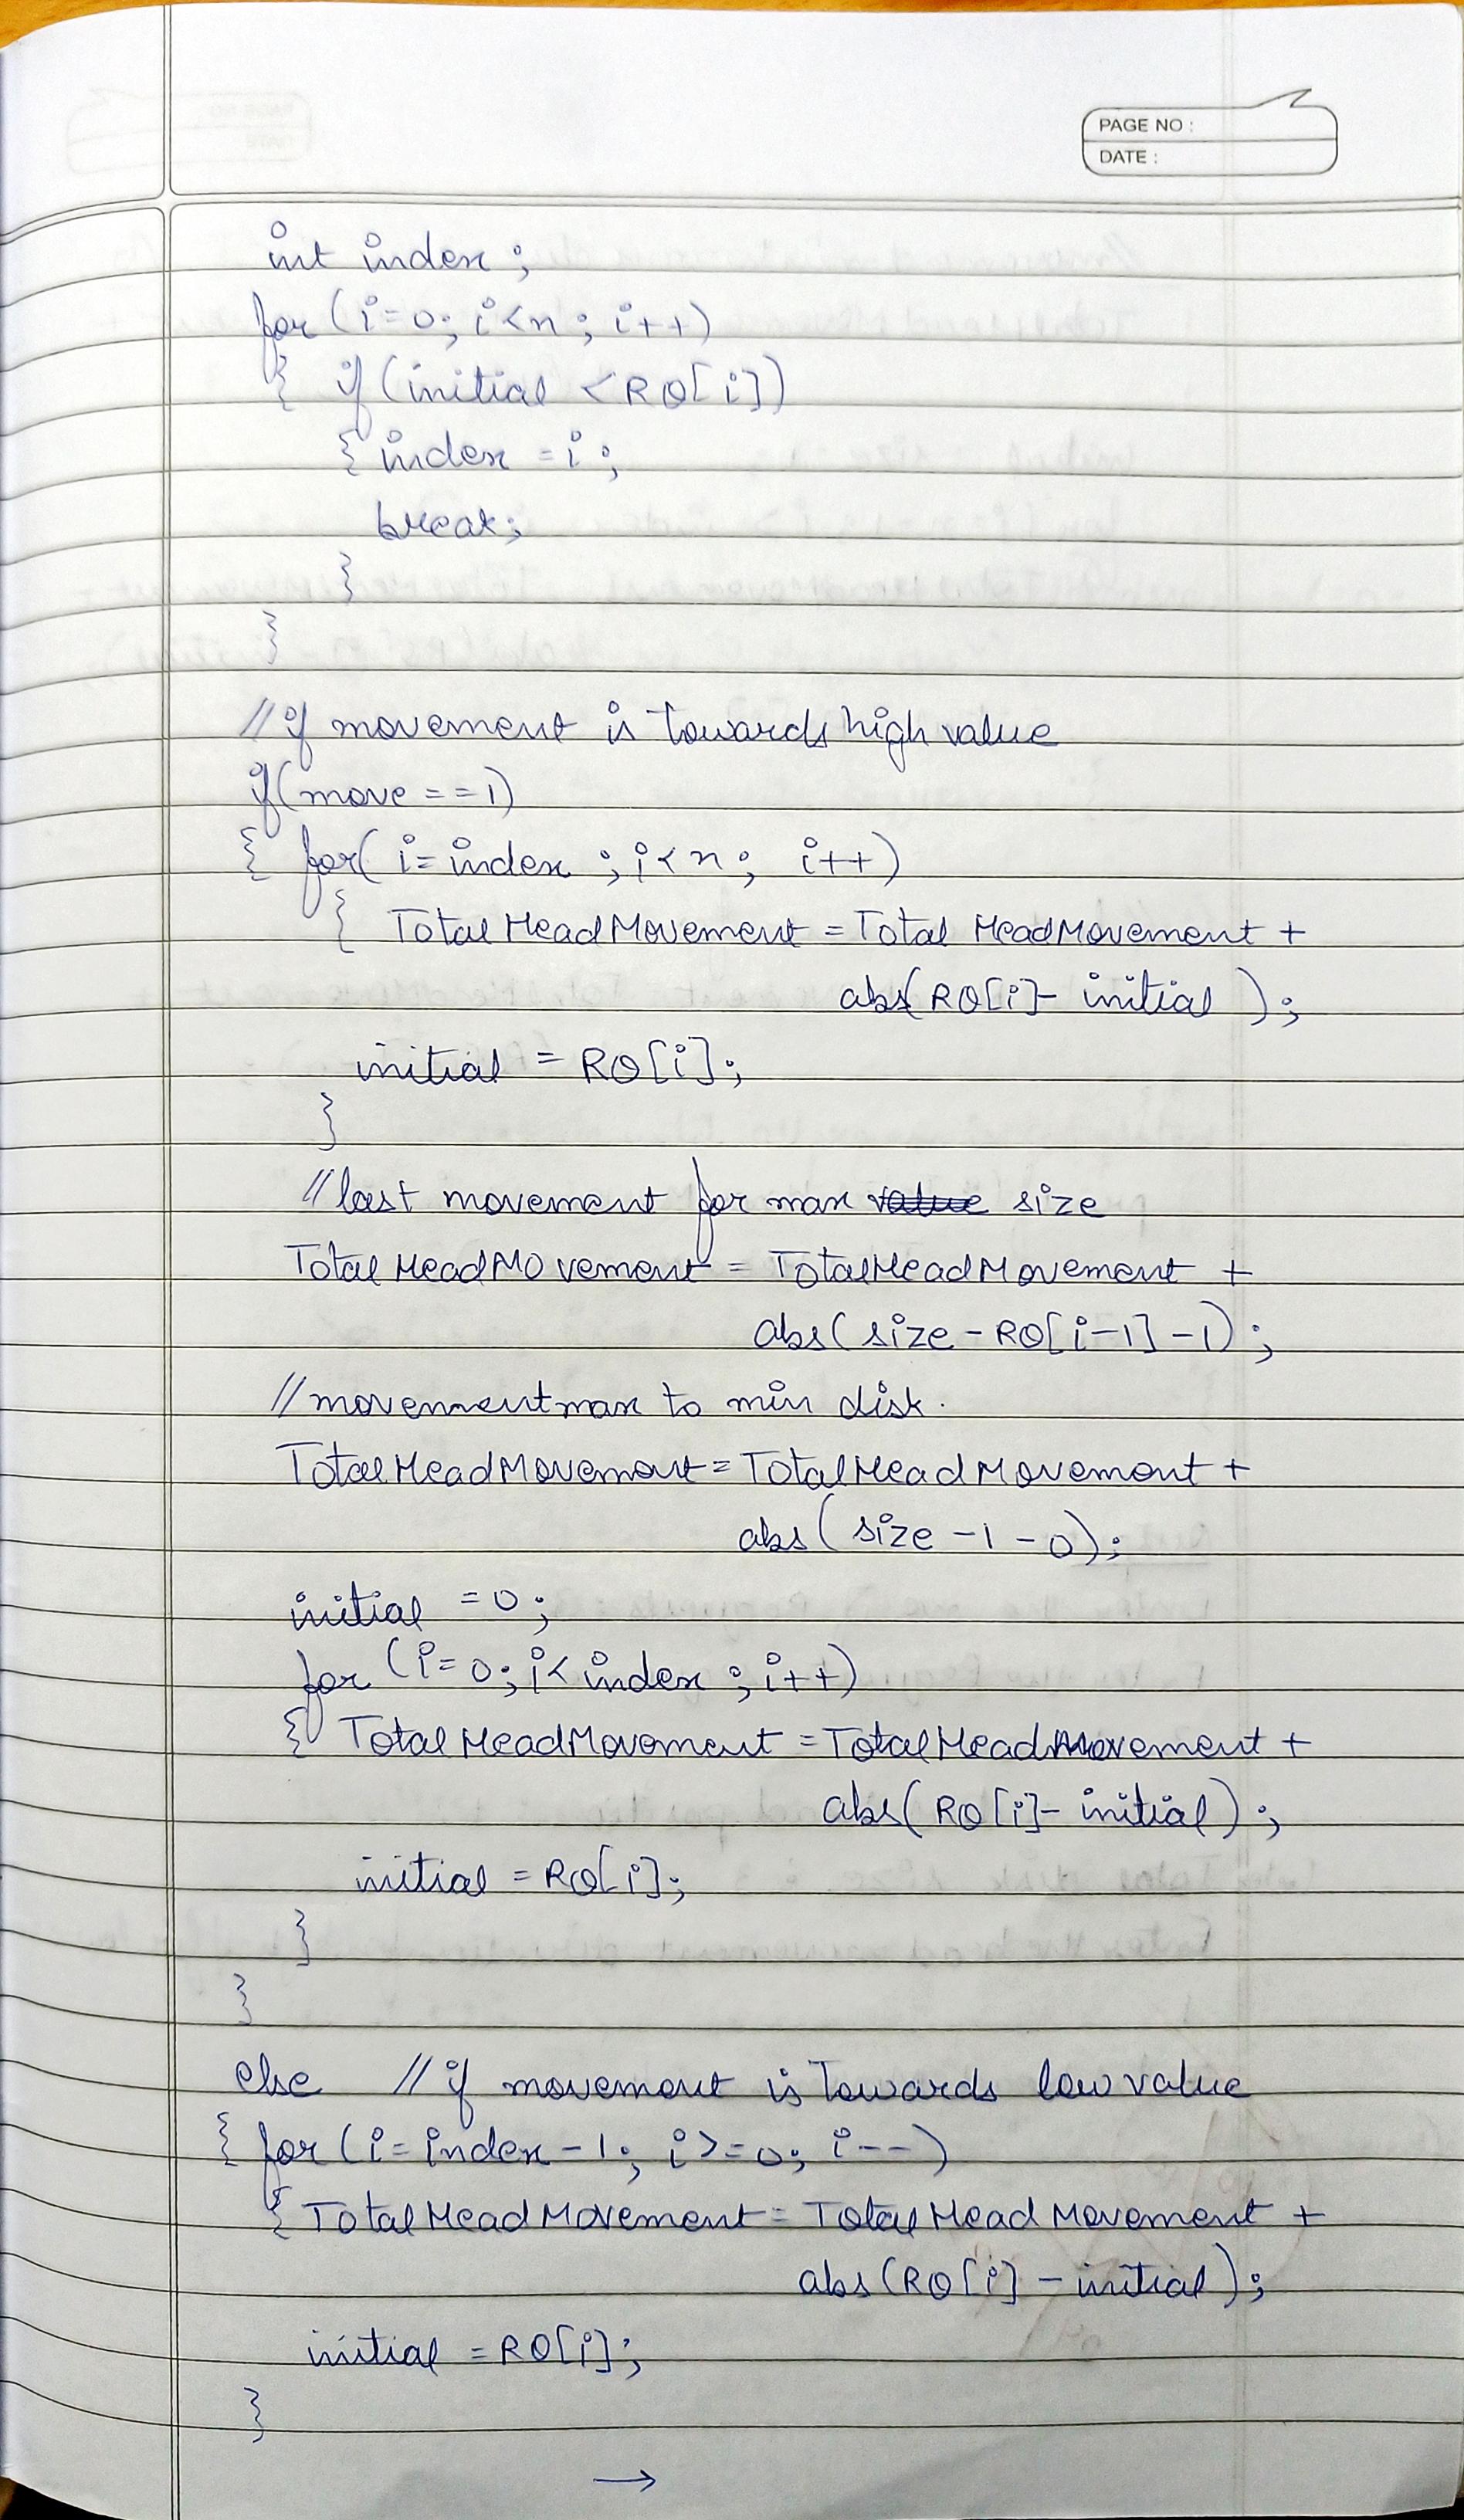 PAGE NO :
DATE :
int index ;
for (i=0; i<n ; i++)
{ if (initial < RQ[i])
{ index = i ;
break;
}
}
// if movement is towards high value
if(move==1)
{ for( i= index ; i<n ; i++)
{ TotalHeadMovement = Total HeadMovement +
abs(RQ[i]- initial );
initial = RQ[i];
}
// last movement for max size
TotalHeadMovement = TotalHeadMovement +
abs( size - RQ[i-1] -1) ;
// movement max to min disk.
TotalHeadMovement = TotalHeadMovement +
abs( size -1 -0);
initial =0;
for (i=0; i< index ; i++)
{ TotalHeadMovement = TotalHeadMovement +
abs( RQ[i]- initial) ;
initial = RQ[i];
}
}
else // if movement is towards low value
{ for (i= index -1; i>=0; i--)
{ TotalHeadMovement = TotalHeadMovement +
abs (RQ[i] - initial);
initial = RQ[i];
}
→